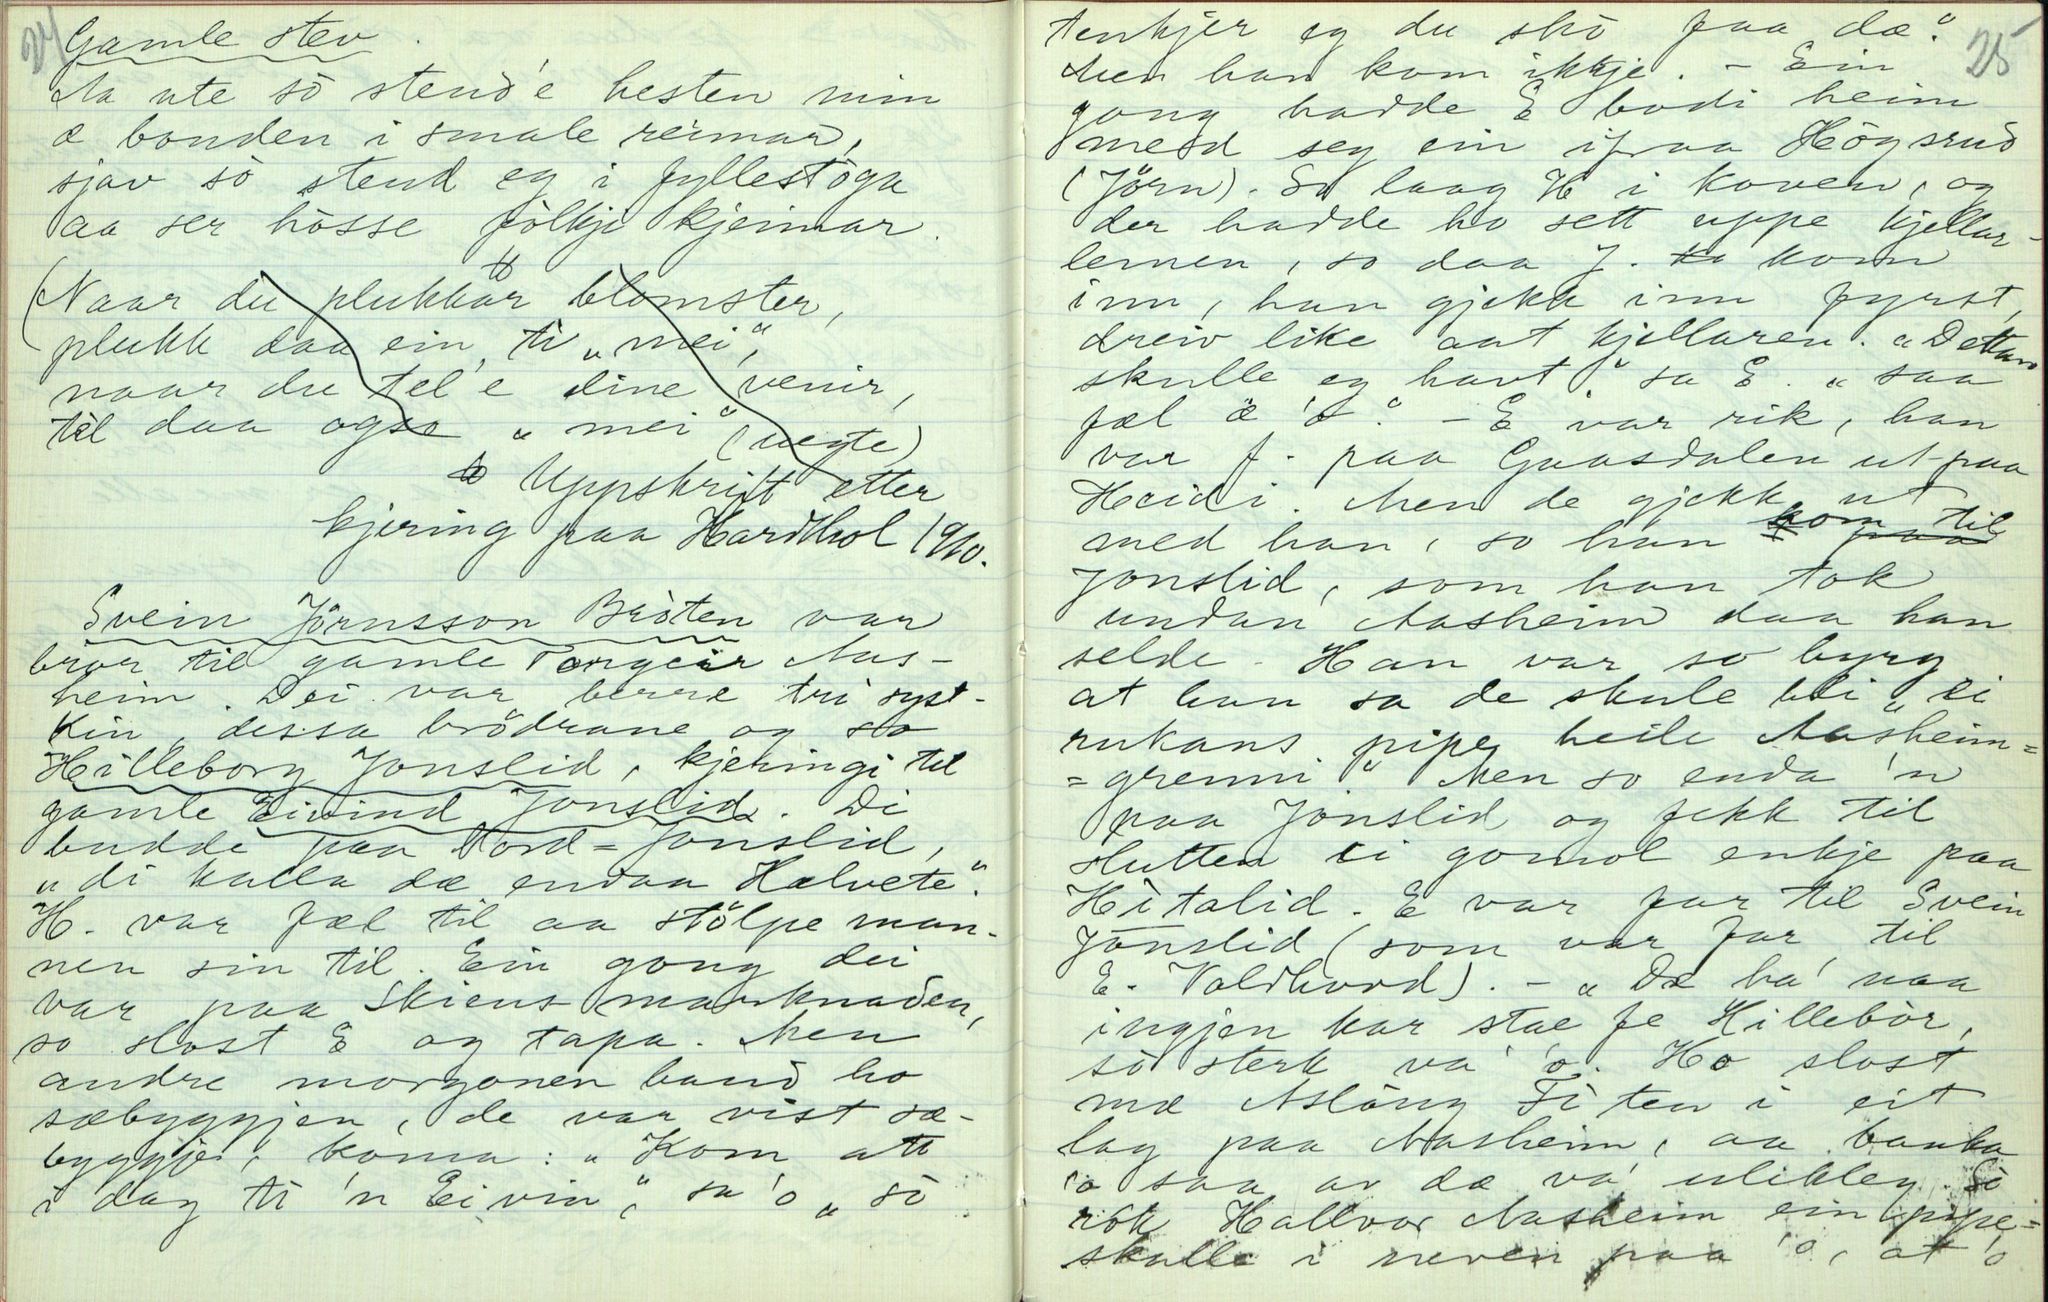 24
Gamle stev.
Aa ute sò stend'e hesten min
æ bonden i smale reimar,
sjav sò stend eg i fyllestòga
aa ser hòsse fòlkje kjeimar.
(Naar du plukkar blomster,
plukk daa ein ti „mei“,
naar du tel'e dine venir,
til daa ogso „mei“ (uegte)
Uppskrift etter
kjering paa Hardhol 1910.
Svein Jörnsson Bròten var
bror til gamle Torgeir Aas-
heim. Dei var berre tri syst-
kin, dessa brödrane og so
Hilleborg Jonslid, kjeringi til
gamle Eivind Jonslid. Di
budde paa Nord-Jonslid,
„di kalla dæ endaa Hælvete“.
H. var fæl til aa stölpe man-
nen sin til. Ein gong dei
var paa Skiens-marknaden,
so slost E og tapa. Men
andre morgonen baud ho
sæbyggjen, de var vist sæ-
byggje, koma: „Kom att
i dag ti 'n Eivin“, sa 'o „sò
25
tenkjer eg du skò faa dæ“.
Men han kom ikkje. - Ein
gong hadde E bodi heim
med seg ein ifraa Högsrud
(Jörn). So laag H i koven, og
der hadde ho sett uppe kjellar-
lemen, so daa J. kom
inn, han gjekk inn fyrst,
dreiv like aat kjellaren. „Dettan
skulle eg havt“, sa E. „saa
fæl æ 'o“. - E var rik, han
var f. paa Gaasdalen ut paa
Heidi. Men de gjekk ut
med han, so han kom til
Jonslid, som han tok
undan Aasheim daa han
selde. Han var so byrg
at han sa de skule bli „ei
rukans pipe heile Aasheim-
=grenni“ Men so enda 'n
paa Jònslid og fekk til
slutten ei gomol enkje paa
Hìtalid. E var far til Svein
Jònslid (som var far til
E. Valdhovd). - „Dæ ha' naa
ingjen kar stae fe Hillebòr,
sò sterk va' 'o. Ho slost
mæ Aslaug Fìten i eit
lag paa Aasheim, aa banka
'o saa at dæ va' ulikleg. Sò
rök Hallvor Aasheim ein pipe=
skalle i neven paa 'o, at 'o